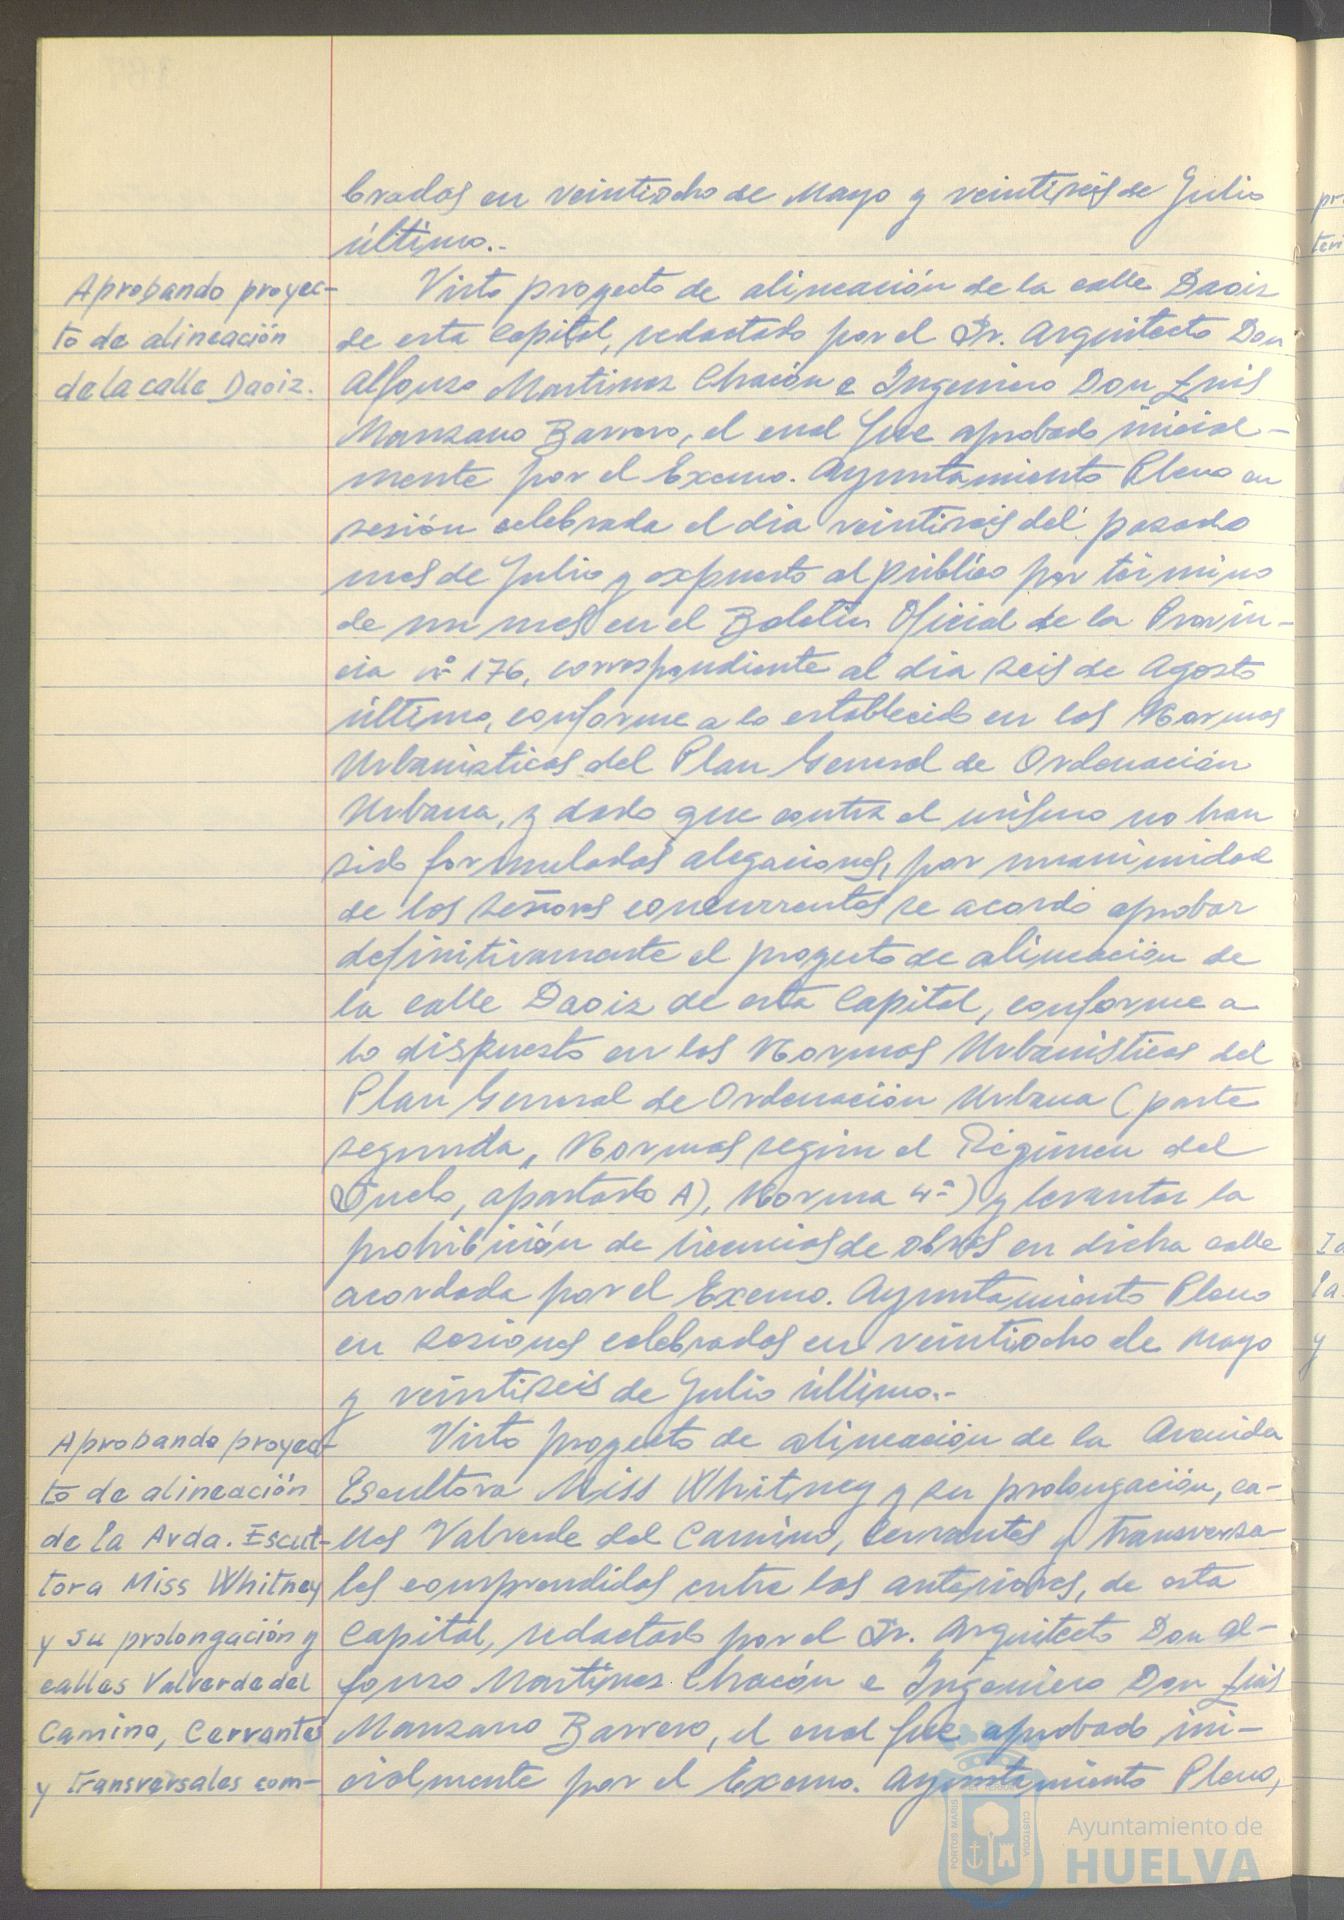 brados en veintiocho de Mayo y veintiseis de Julio
último.-
Aprobando proyec-
to de alineación
de la calle Daoiz.
Visto proyecto de alineación de la calle Daoiz
de esta Capital, redactado por el Sr. Arquitecto Don
Alfonso Martinez Chacón e Ingeniero Don Luis
Manzano Barrero, el cual fue aprobado inicial-
mente por el Excmo. Ayuntamiento Pleno en
sesión celebrada el dia veintiseis del pasado
mes de Julio y expuesto al público por término
de un mes en el Boletin Oficial de la Provin-
cia nº 176, correspondiente al dia seis de Agosto
último, conforme a lo establecido en las Normas
Urbanisticas del Plan General de Ordenación
Urbana, y dado que contra el mismo no han
sido formuladas alegaciones, por unanimidad
de los señores concurrentes se acordó aprobar
definitivamente el proyecto de alineación de
la calle Daoiz de esta Capital, conforme a
lo dispuesto en las Normas Urbanisticas del
Plan General de Ordenación Urbana (parte
segunda, Normas según el Régimen del
Suelo, apartado A), Norma 4ª) y levantar la
prohibición de licencias de obras en dicha calle
acordada por el Excmo. Ayuntamiento Pleno
en sesiones celebradas en veintiocho de Mayo
y veintiseis de Julio último.-
Aprobando proyec-
to de alineación
de la Avda. Escul-
tora Miss Whitney
y su prolongación y
calles Valverde del
Camino, Cervantes
y transversales com-
Visto proyecto de alineación de la Avenida
Escultora Miss Whitney y su prolongación, ca-
lles Valverde del Camino, Cervantes y transversa-
les comprendidas entre las anteriores, de esta
Capital, redactado por el Sr. Arquitecto Don Al-
fonso Martinez Chacón e Ingeniero Don Luis
Manzano Barrero, el cual fue aprobado ini-
cialmente por el Excmo. Ayuntamiento Pleno,
PORTUS MARIS
CUSTODIA
Ayuntamiento de
HUELVA